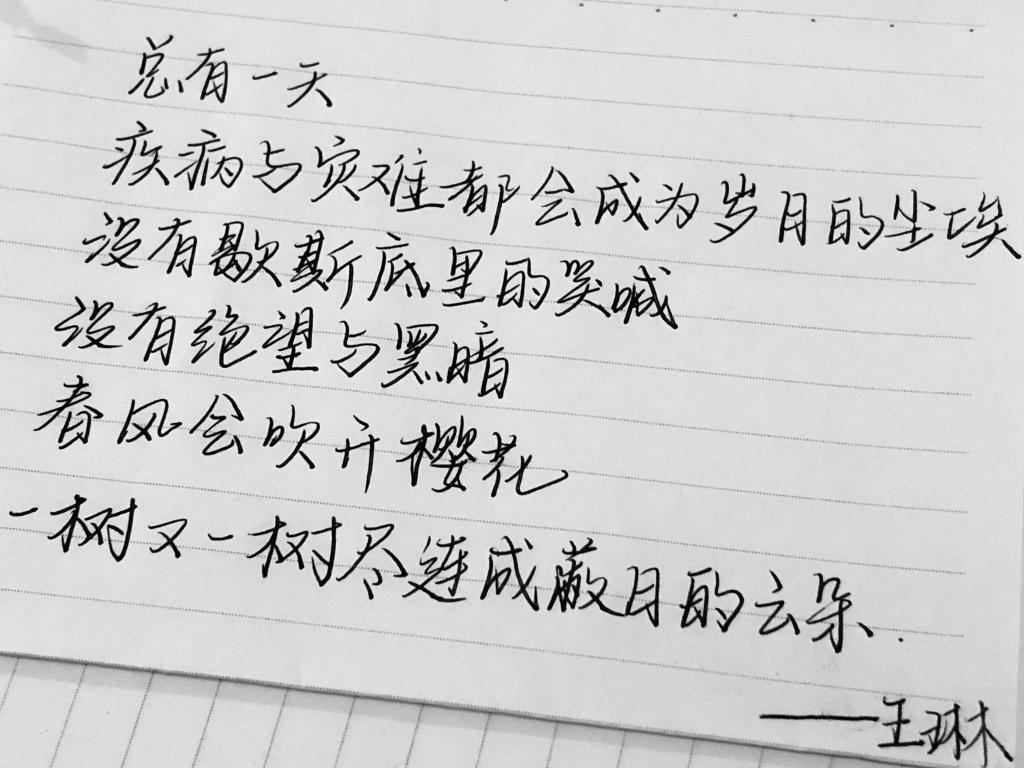 总有一天
疾病与灾难都会成为岁月的尘埃
没有歇斯底里的哭喊
没有绝望与黑暗
春风会吹开樱花
一树又一树尽连成蔽日的云朵.
——王琳